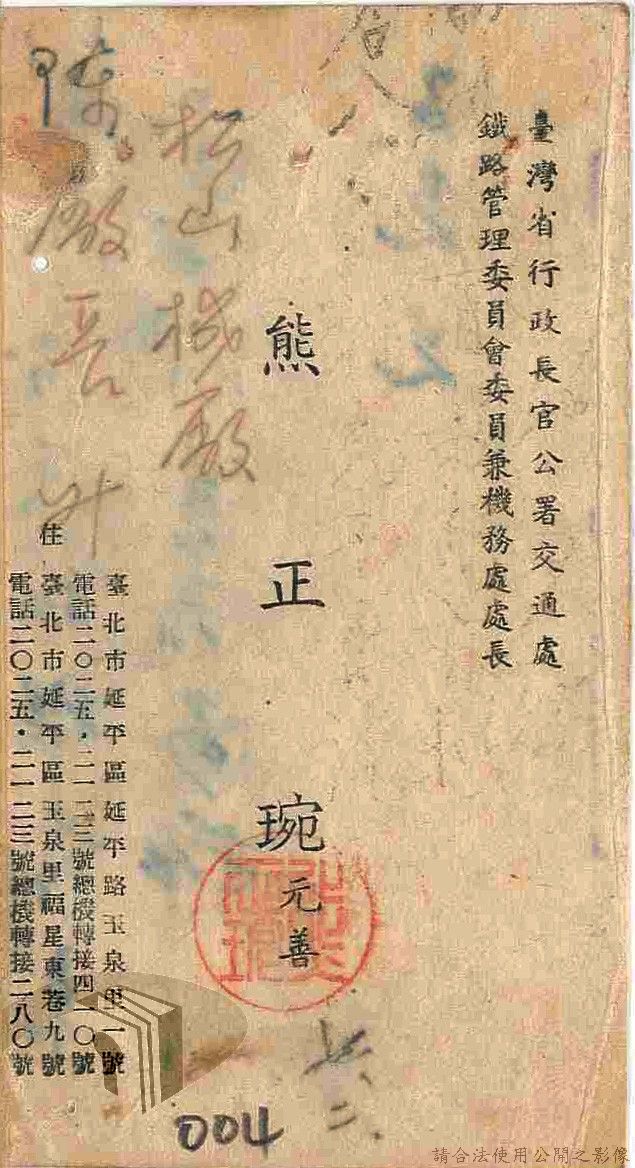 臺灣省行政長官公署交通處
鐵路管理委員會委員兼機務處處長
熊正琬
元善
松山機廠
廠長
住
臺北市延平區延平路玉泉里一號
電話二〇二五·二一二三號總機轉接四一〇號
臺北市延平區玉泉里福星東巷九號
電話二〇二五·二一二三號總機轉接二八〇號
004
請合法使用公開之影像